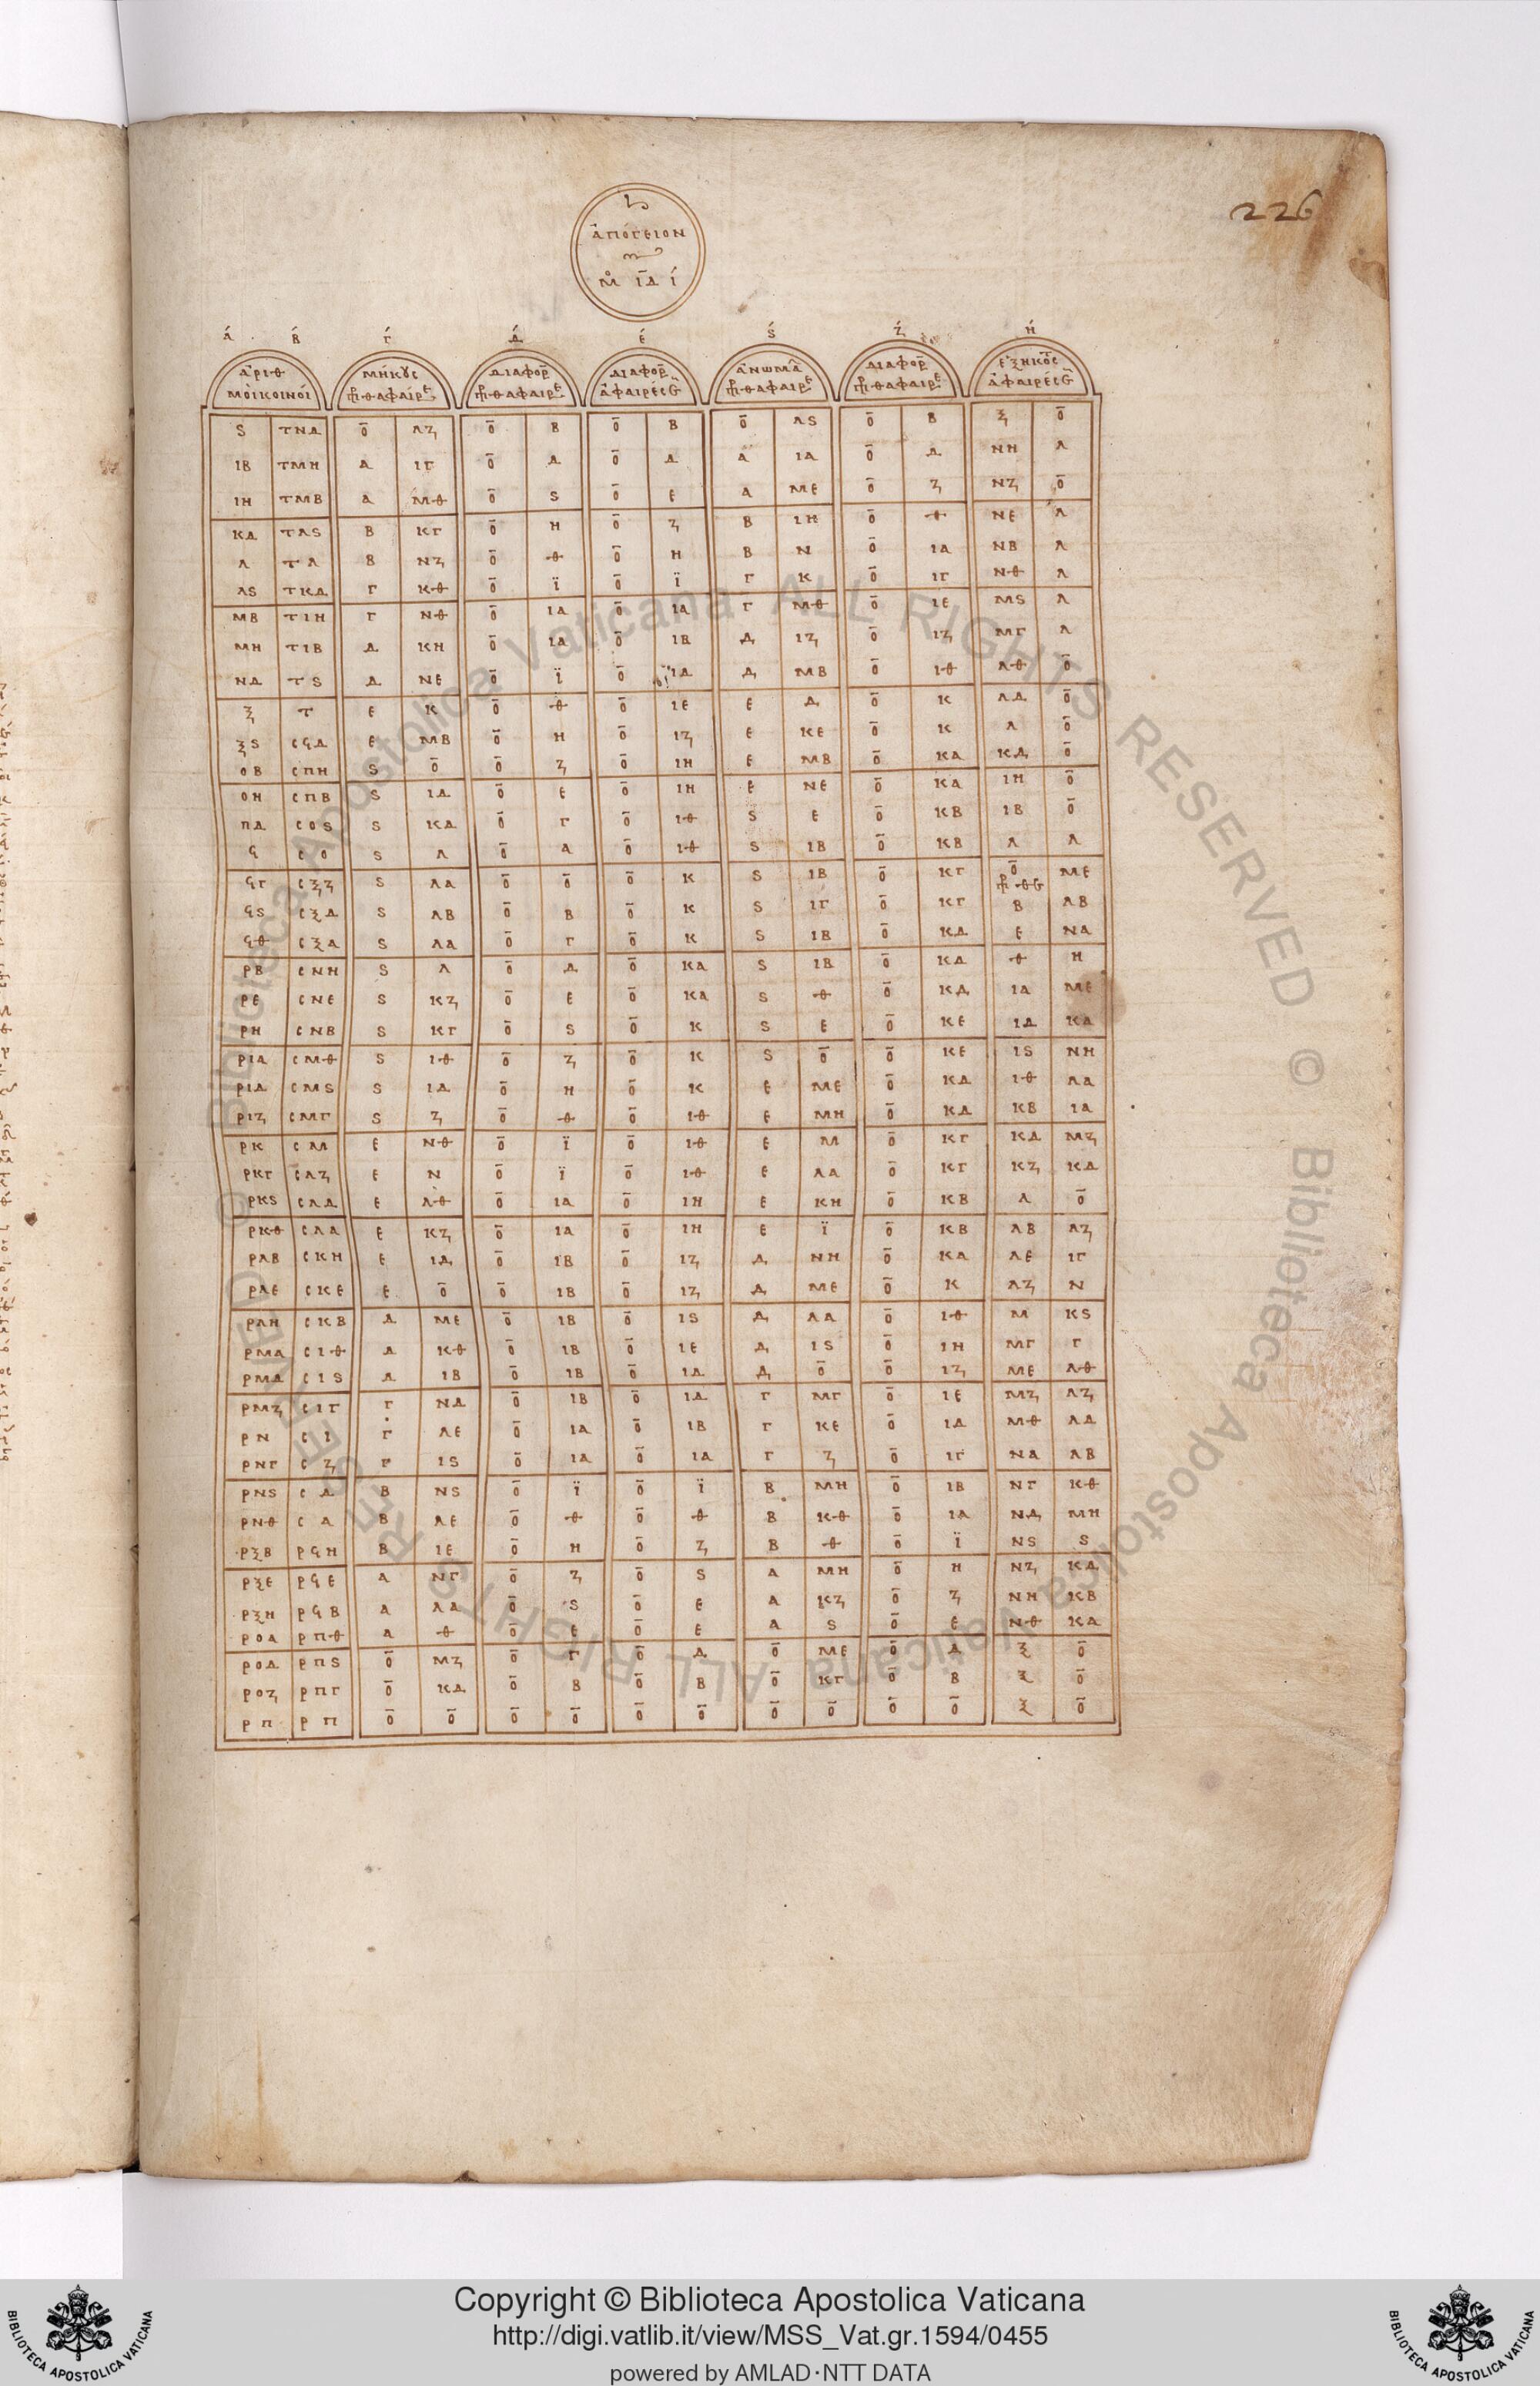 226
ἀπόγειον
ἀ β γ δ ε ϛ ζ η
ἀριθμοὶ κοινοί
ο ΛΖ ο Β ο Β ο ΛϚ ο Β Ξ ο
Ϛ ΤΝΔ ο ΛΖ ο Β ο Β ο ΛϚ ο Β Ξ ο
ΙΒ ΤΜΗ Α ΙΓ ο Δ ο Δ Α ΙΑ ο Δ ΝΗ Λ
ΙΗ ΤΜΒ Α ΜΘ ο Ϛ ο Ε Α ΜΕ ο Ζ ΝΖ ο
ΚΔ ΤΛϚ Β ΚΓ ο Η ο Ζ Β ΙΗ ο Θ ΝΕ Λ
Λ ΤΛ Β ΝΖ ο Θ ο Η Β Ν ο ΙΑ ΝΒ Λ
ΛϚ ΤΚΔ Γ ΚΘ ο Ϊ ο Ϊ Γ Κ ο ΙΓ ΝΘ Λ
ΜΒ ΤΙΗ Γ ΝΘ ο ΙΑ ο ΙΑ Γ ΜΘ ο ΙΕ ΜϚ Λ
ΜΗ ΤΙΒ Δ ΚΗ ο ΙΑ ο ΙΒ Δ ΙΖ ο ΙΖ ΜΓ Λ
ΝΔ ΤϚ Δ ΝΕ ο Ϊ ο ΙΔ Δ ΜΒ ο ΙΘ ΛΘ ο
Ξ Τ Ε Κ ο Θ ο ΙΕ Ε Δ ο Κ ΛΔ ο
ΞϚ ϹϞΔ Ε ΜΒ ο Η ο ΙΖ Ε ΚΕ ο Κ Λ ο
ΟΒ ϹΠΗ Ϛ ο ο Ζ ο ΙΗ Ε ΜΒ ο ΚΑ ΚΔ ο
ΟΗ ϹΠΒ Ϛ ΙΔ ο Ε ο ΙΗ Ε ΝΕ ο ΚΑ ΙΗ ο
ΠΔ ϹΟϚ Ϛ ΚΔ ο Γ ο ΙΘ Ϛ Ε ο ΚΒ ΙΒ ο
Ϟ ϹΟ Ϛ Λ ο Α ο ΙΘ Ϛ ΙΒ ο ΚΒ Λ Λ
ϞΓ ϹΞΖ Ϛ ΛΑ ο ο ο Κ Ϛ ΙΒ ο ΚΓ ο ΜΕ
ϞϚ ϹΞΔ Ϛ ΛΒ ο Β ο Κ Ϛ ΙΓ ο ΚΓ Β ΛΒ
ϞΘ ϹΞΑ Ϛ ΛΑ ο Γ ο Κ Ϛ ΙΒ ο ΚΔ Ε ΝΑ
ΡΒ ϹΝΗ Ϛ Λ ο Δ ο ΚΑ Ϛ ΙΒ ο ΚΔ Θ Η
ΡΕ ϹΝΕ Ϛ ΚΖ ο Ε ο ΚΑ Ϛ Θ ο ΚΔ ΙΑ ΜΕ
ΡΗ ϹΝΒ Ϛ ΚΓ ο Ϛ ο Κ Ϛ Ε ο ΚΕ ΙΔ ΚΑ
ΡΙΑ ϹΜΘ Ϛ ΙΘ ο Ζ ο Κ Ϛ ο ο ΚΕ ΙϚ ΝΗ
ΡΙΔ ϹΜϚ Ϛ ΙΔ ο Η ο Κ Ε ΜΕ ο ΚΔ ΙΘ ΛΑ
ΡΙΖ ϹΜΓ Ϛ Ζ ο Θ ο ΙΘ Ε ΜΗ ο ΚΔ ΚΒ ΙΑ
ΡΚ ϹΜ Ε ΝΘ ο Ϊ ο ΙΘ Ε Μ ο ΚΓ ΚΔ ΜΖ
ΡΚΓ ϹΛΖ Ε Ν ο Ϊ ο ΙΘ Ε ΛΑ ο ΚΓ ΚΖ ΚΔ
ΡΚϚ ϹΛΔ Ε ΛΘ ο ΙΑ ο ΙΗ Ε ΚΗ ο ΚΒ Λ ο
ΡΚΘ ϹΛΑ Ε ΚΖ ο ΙΑ ο ΙΗ Ε Ϊ ο ΚΒ ΛΒ ΛΖ
ΡΛΒ ϹΚΗ Ε ΙΔ ο ΙΒ ο ΙΖ Δ ΝΗ ο ΚΑ ΛΕ ΙΓ
ΡΛΕ ϹΚΕ Ε ο ο ΙΒ ο ΙΖ Δ ΜΕ ο Κ ΛΖ Ν
ΡΛΗ ϹΚΒ Δ ΜΕ ο ΙΒ ο ΙϚ Δ ΛΑ ο ΙΘ Μ ΚϚ
ΡΜΑ ϹΙΘ Δ ΚΘ ο ΙΒ ο ΙΕ Δ ΙϚ ο ΙΗ ΜΓ Γ
ΡΜΔ ϹΙϚ Δ ΙΒ ο ΙΒ ο ΙΔ Δ ο ο ΙΖ ΜΕ ΛΘ
ΡΜΖ ϹΙΓ Γ ΝΔ ο ΙΒ ο ΙΔ Γ ΜΓ ο ΙΕ ΜΖ ΛΖ
ΡΝ ϹΙ Γ ΛΕ ο ΙΑ ο ΙΒ Γ ΚΕ ο ΙΔ ΜΘ ΛΔ
ΡΝΓ ϹΖ Γ ΙϚ ο ΙΑ ο ΙΑ Γ Ζ ο ΙΓ ΝΑ ΛΒ
ΡΝϚ ϹΔ Β ΝϚ ο Ϊ ο Ϊ Β ΜΗ ο ΙΒ ΝΓ ΚΘ
ΡΝΘ ϹΑ Β ΛΕ ο Θ ο Θ Β ΚΘ ο ΙΑ ΝΔ ΜΗ
ΡΞΒ ΡϞΗ Β ΙΕ ο Η ο Ζ Β Θ ο Ϊ ΝϚ Ϛ
ΡΞΕ ΡϞΕ Α ΝΓ ο Ζ ο Ϛ Α ΜΗ ο Η ΝΖ ΚΔ
ΡΞΗ ΡϞΒ Α ΛΑ ο Ϛ ο Ε Α ΚΖ ο Ζ ΝΗ ΚΒ
ΡΟΑ ΡΠΘ Α Θ ο Ε ο Ε Α Ϛ ο Ε ΝΘ ΚΑ
ΡΟΔ ΡΠϚ ο ΜΖ ο Γ ο Δ ο ΜΕ ο Δ Ξ ο
ΡΟΖ ΡΠΓ ο ΚΔ ο Β ο Β ο ΚΓ ο Β Ξ ο
ΡΠ ΡΠ ο ο ο ο ο ο ο ο ο ο Ξ ο
© Biblioteca Apostolica Vaticana ALL RIGHTS RESERVED © Biblioteca Apostolica Vaticana ALL RIGHTS RESERVED
Copyright © Biblioteca Apostolica Vaticana
http://digi.vatlib.it/view/MSS_Vat.gr.1594/0455
powered by AMLAD·NTT DATA
BIBLIOTECA APOSTOLICA VATICANA
BIBLIOTECA APOSTOLICA VATICANA